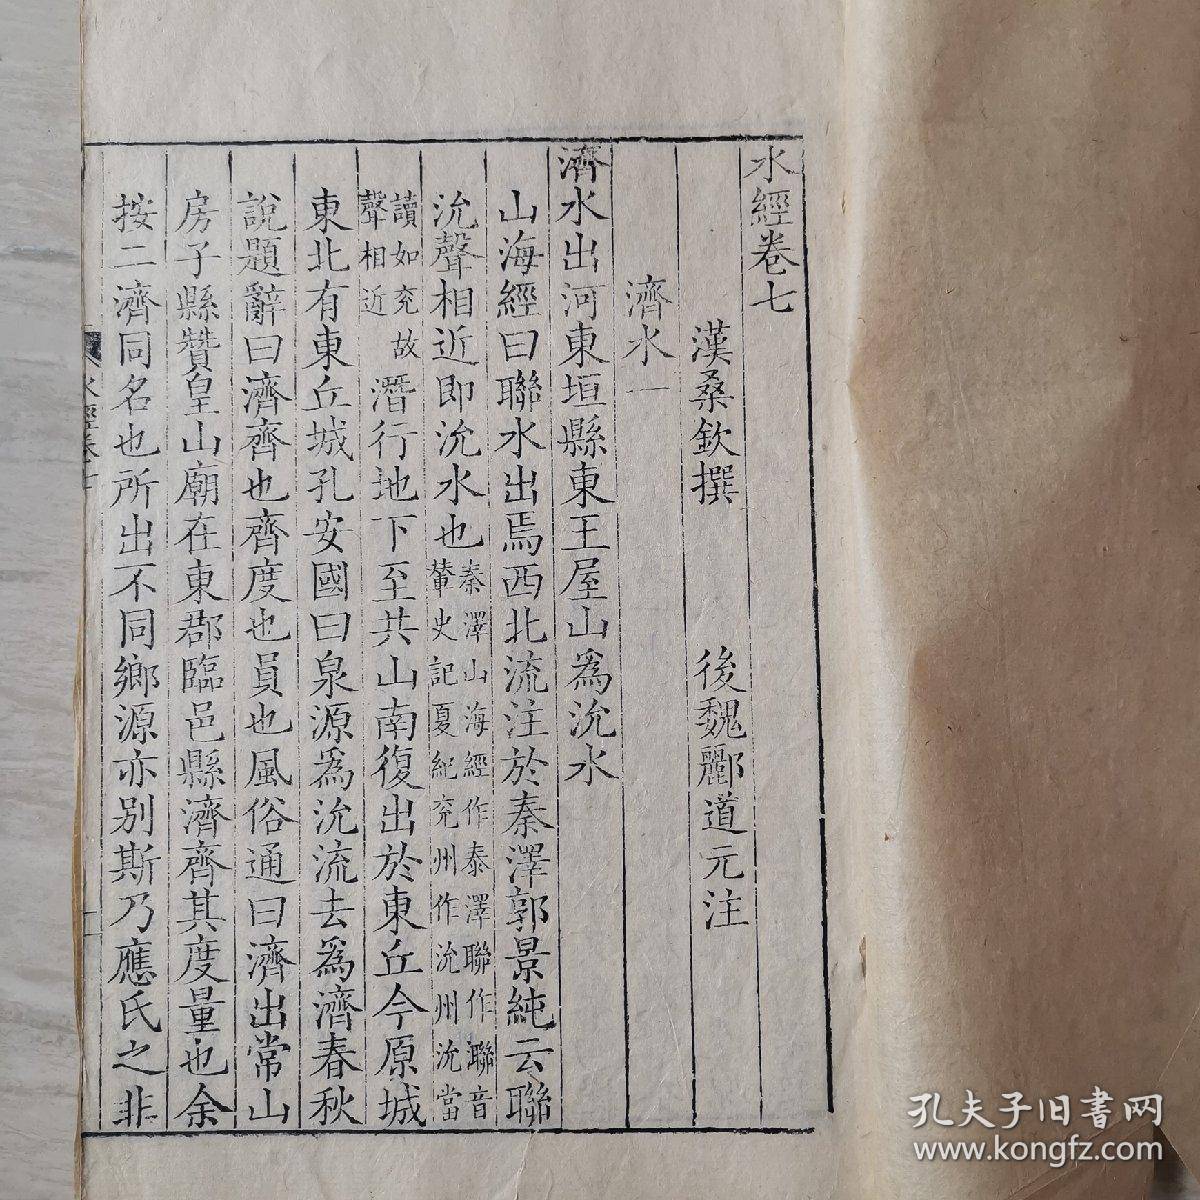 水經卷七
漢桑欽撰 後魏酈道元注
濟水一
濟水出河東垣縣東王屋山爲沇水
山海經曰聯水出焉西北流注於秦澤郭景純云聯
沇聲相近即沇水也秦澤山海經作泰澤聯作聯音輦史記夏紀兖州作沇州沇當
讀如兖故聲相近潛行地下至共山南復出於東丘今原城
東北有東丘城孔安國曰泉源爲沇流去爲濟春秋
說題辭曰濟齊也齊度也員也風俗通曰濟出常山
房子縣贊皇山廟在東郡臨邑縣濟齊其度量也余
按二濟同名也所出不同鄉源亦別斯乃應氏之非
水經卷七
一
孔夫子旧書网
www.kongfz.com